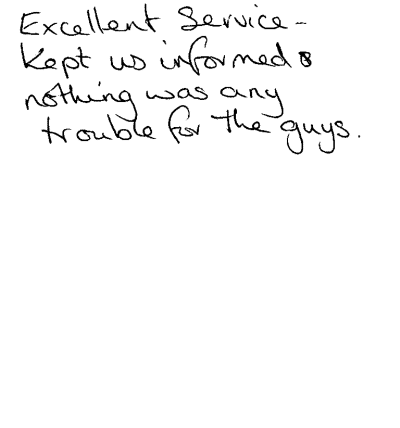 Excellent Service -
Kept us informed &
nothing was any
trouble for the guys.